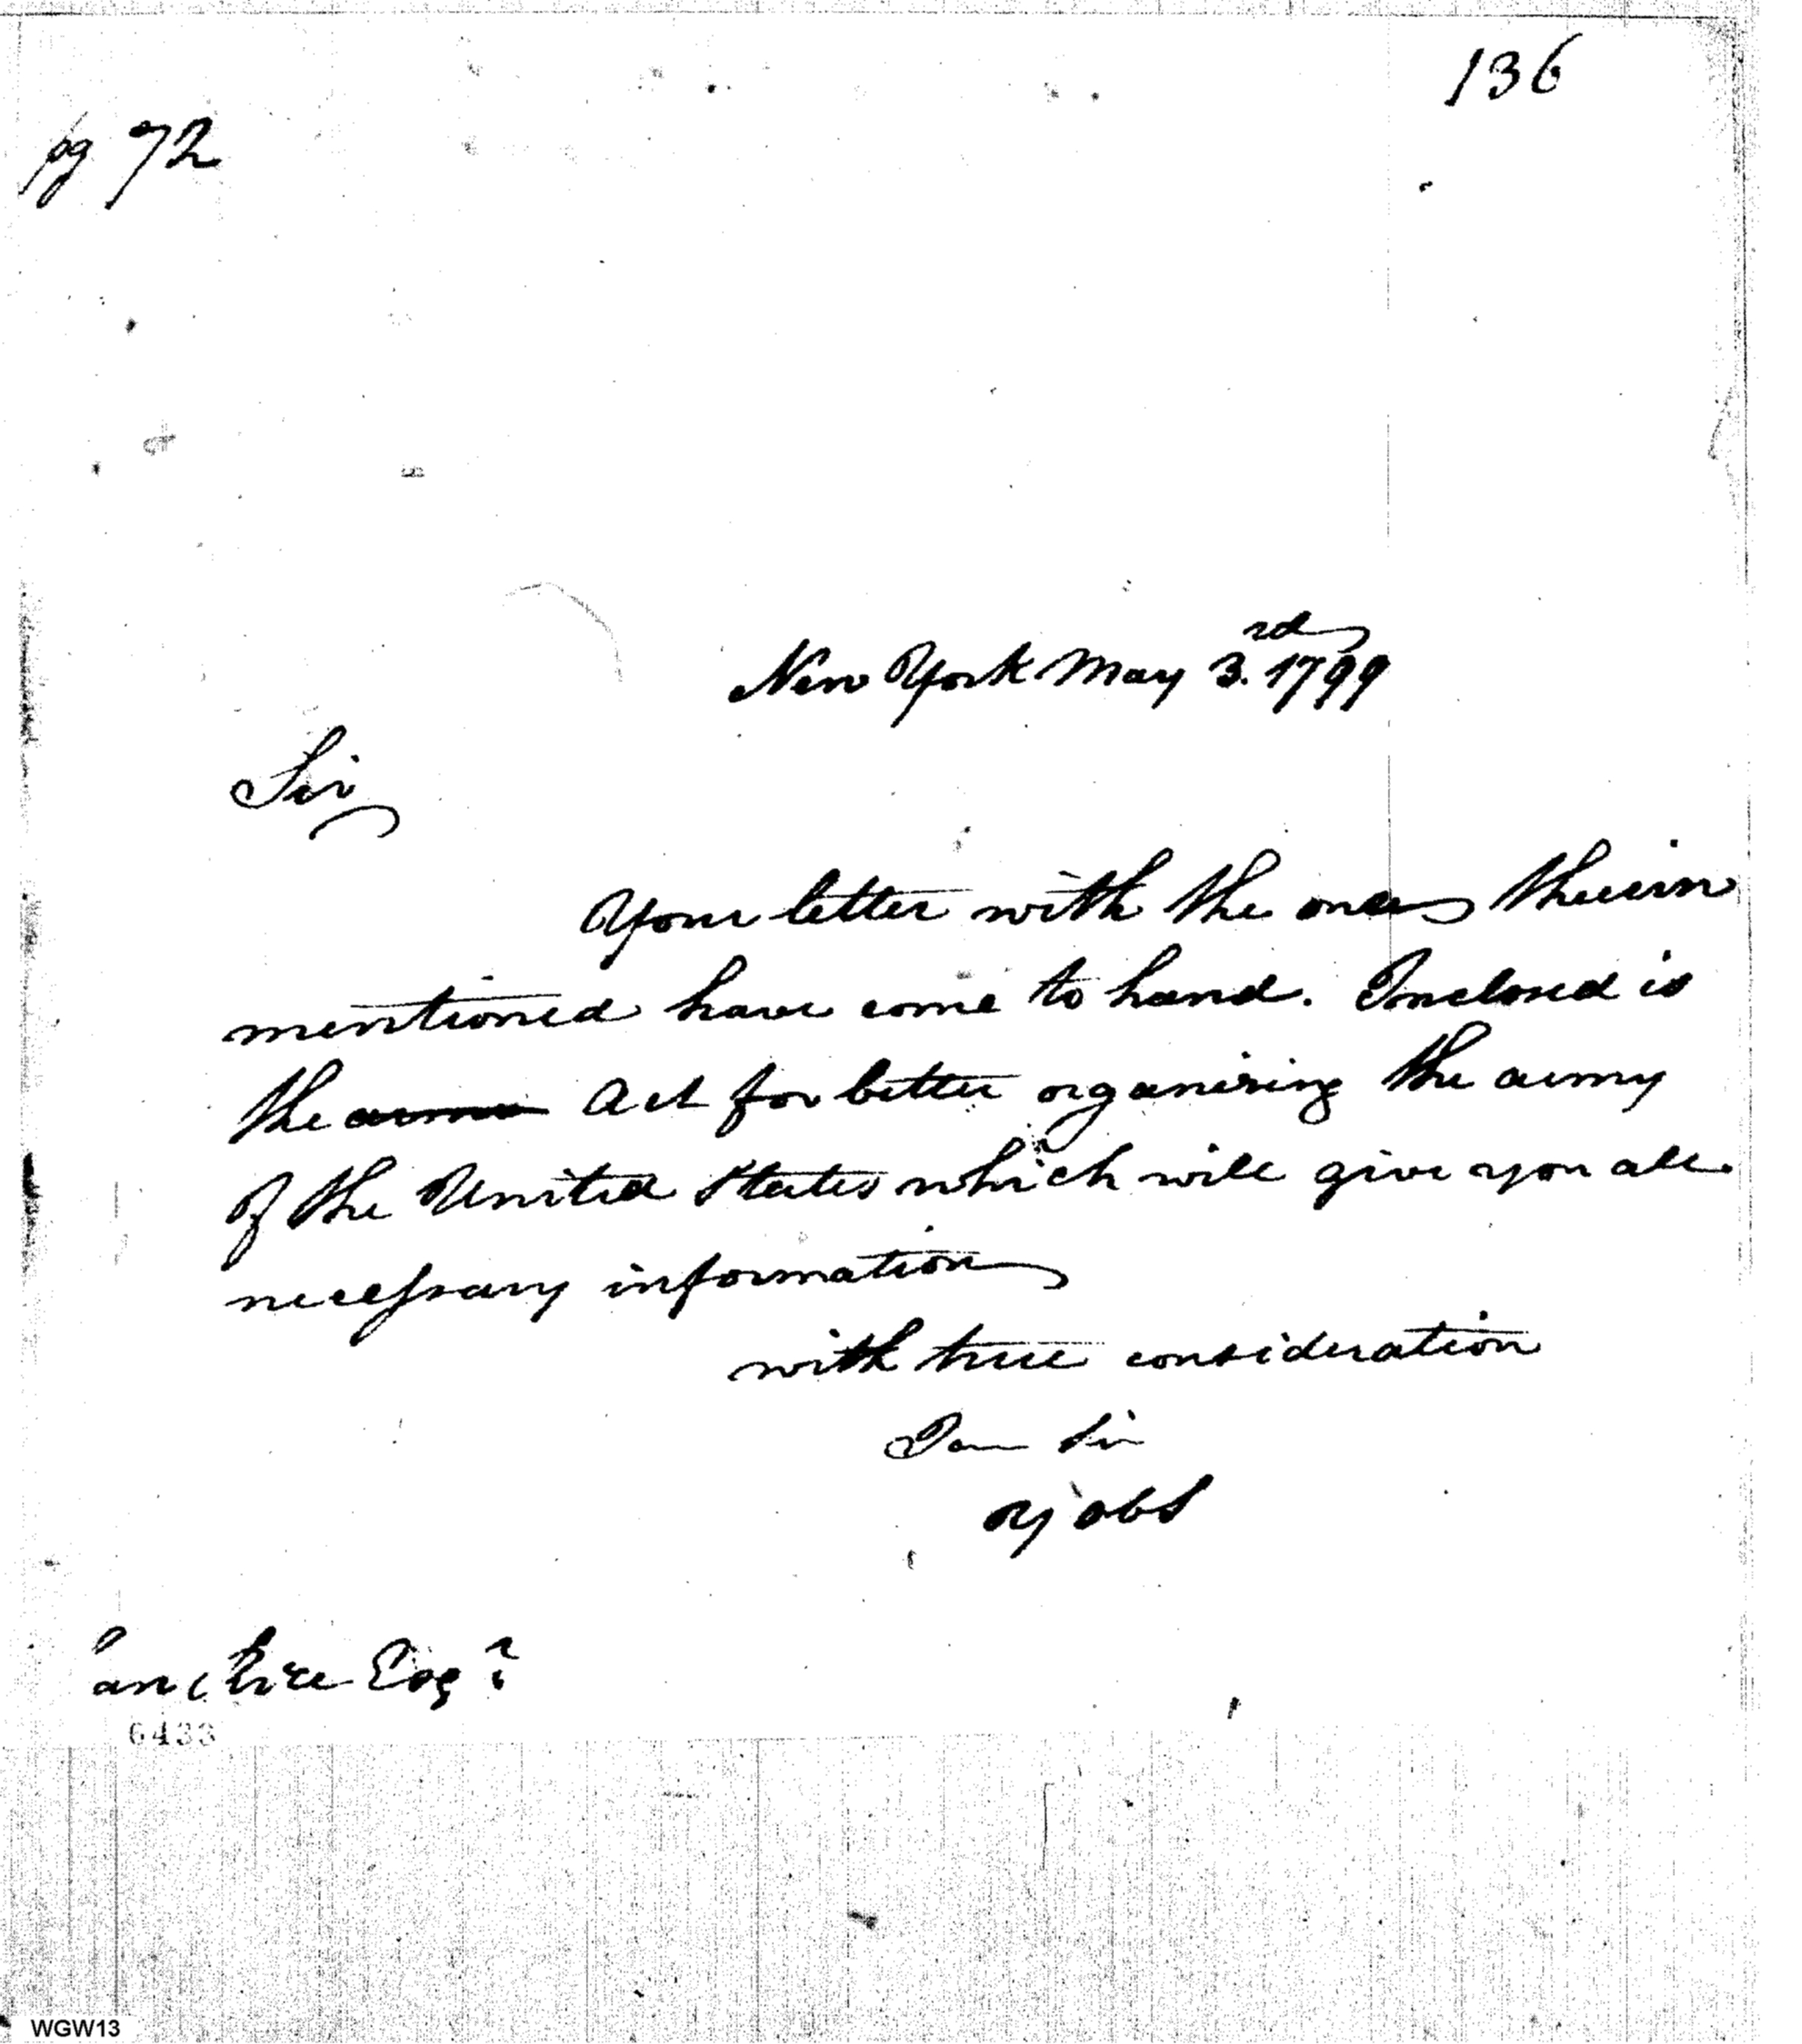 136
pg 72
New York May 3rd. 1799
Sir
Your letter with the ones therein
mentioned have come to hand. Inclosed is
the Act for better organising the army
of the United States which will give you all
necessary information
with true consideration
I am Sir
Yr obs
Rice Esqr
6433
WGW13